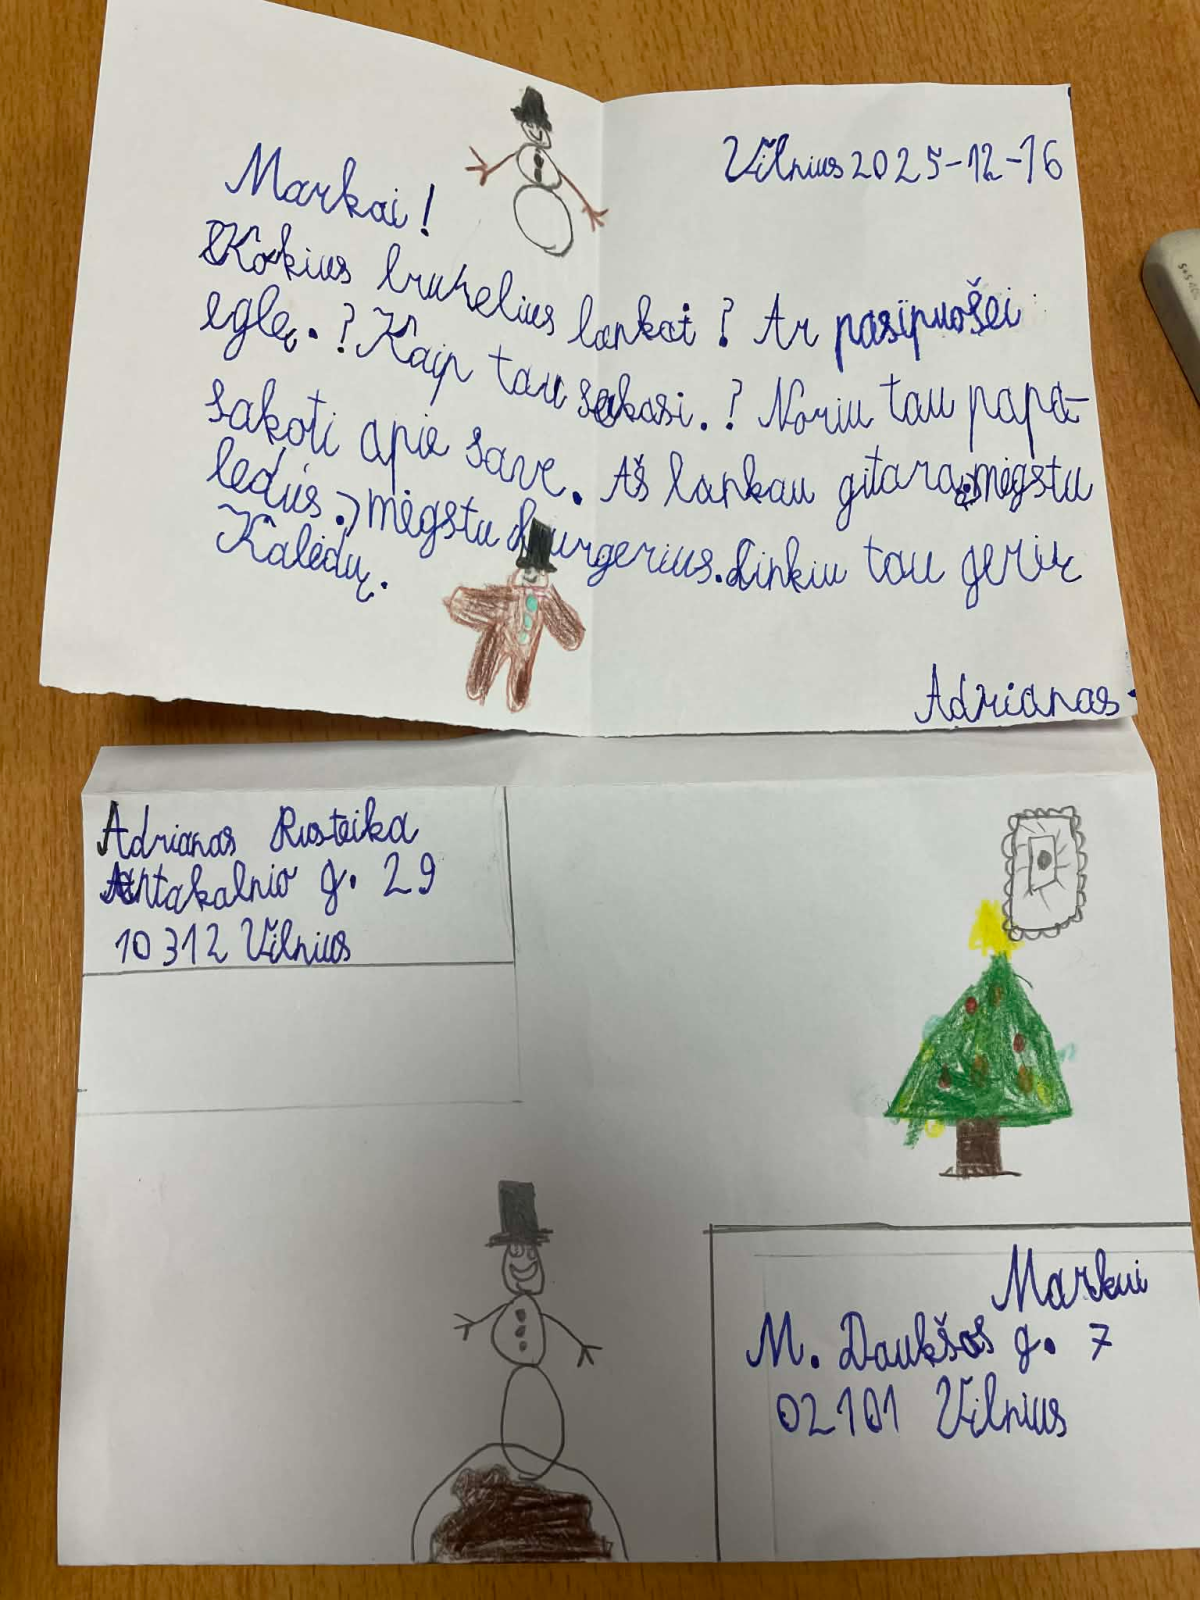 Vilnius 2025-12-16
Markai!
Kokius burelius lankai? Ar pasipuošei
eglę.? Kaip tau sekasi.? Noriu tau papa-
sakoti apie save. Aš lankau gitara, mėgstu
ledus, mėgstu burgerius. Linkiu tau gerių
Kalėdų.
Adrianas
Adrianas Rusteika
Antakalnio g. 29
10312 Vilnius
Markui
M. Daukšos g. 7
02101 Vilnius